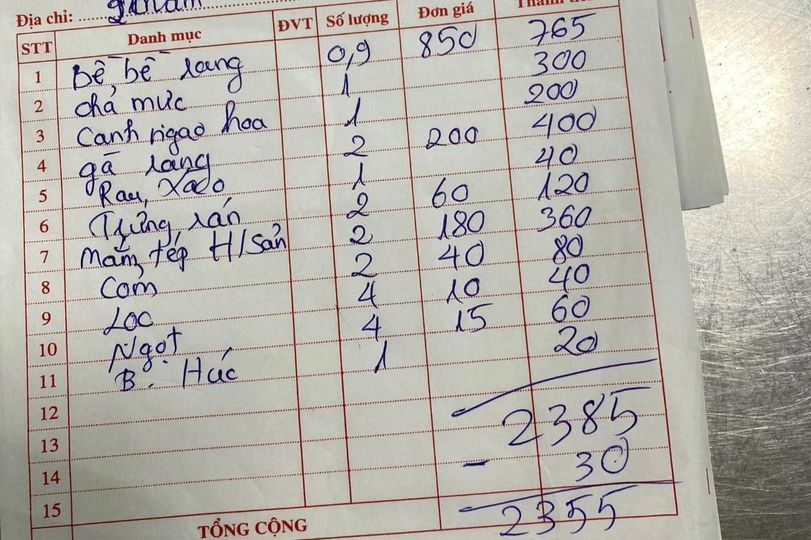 Địa chỉ:
STT Danh mục ĐVT Số lượng Đơn giá Thành tiền
1 Bề, bề rang 0,9 850 765
2 chả mực 1 300
3 Canh ngao hoa 1 200
4 gà rang 2 200 400
5 Rau, Xào 1 40
6 Trứng, rán 2 60 120
7 Mắm, tép H/sản 2 180 360
8 Cơm 2 40 80
9 Lọc 4 10 40
10 Ngọt 4 15 60
11 B. Húc 1 20
12
13 2385
14 - 30
15 2355
TỔNG CỘNG